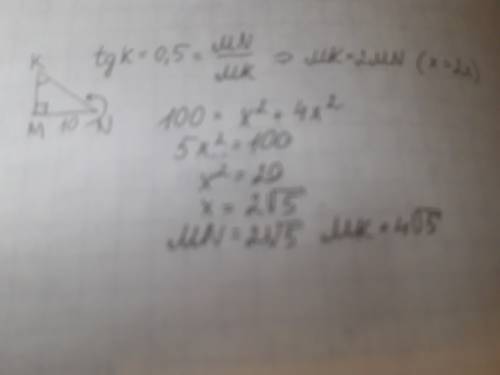 tg K = 0,5 = MN/MK ⇒ MK = 2MN
K
M 10 N
100 = x² + 4x²
5x² = 100
x² = 20
x = 2√5
MN = 2√5 MK = 4√5